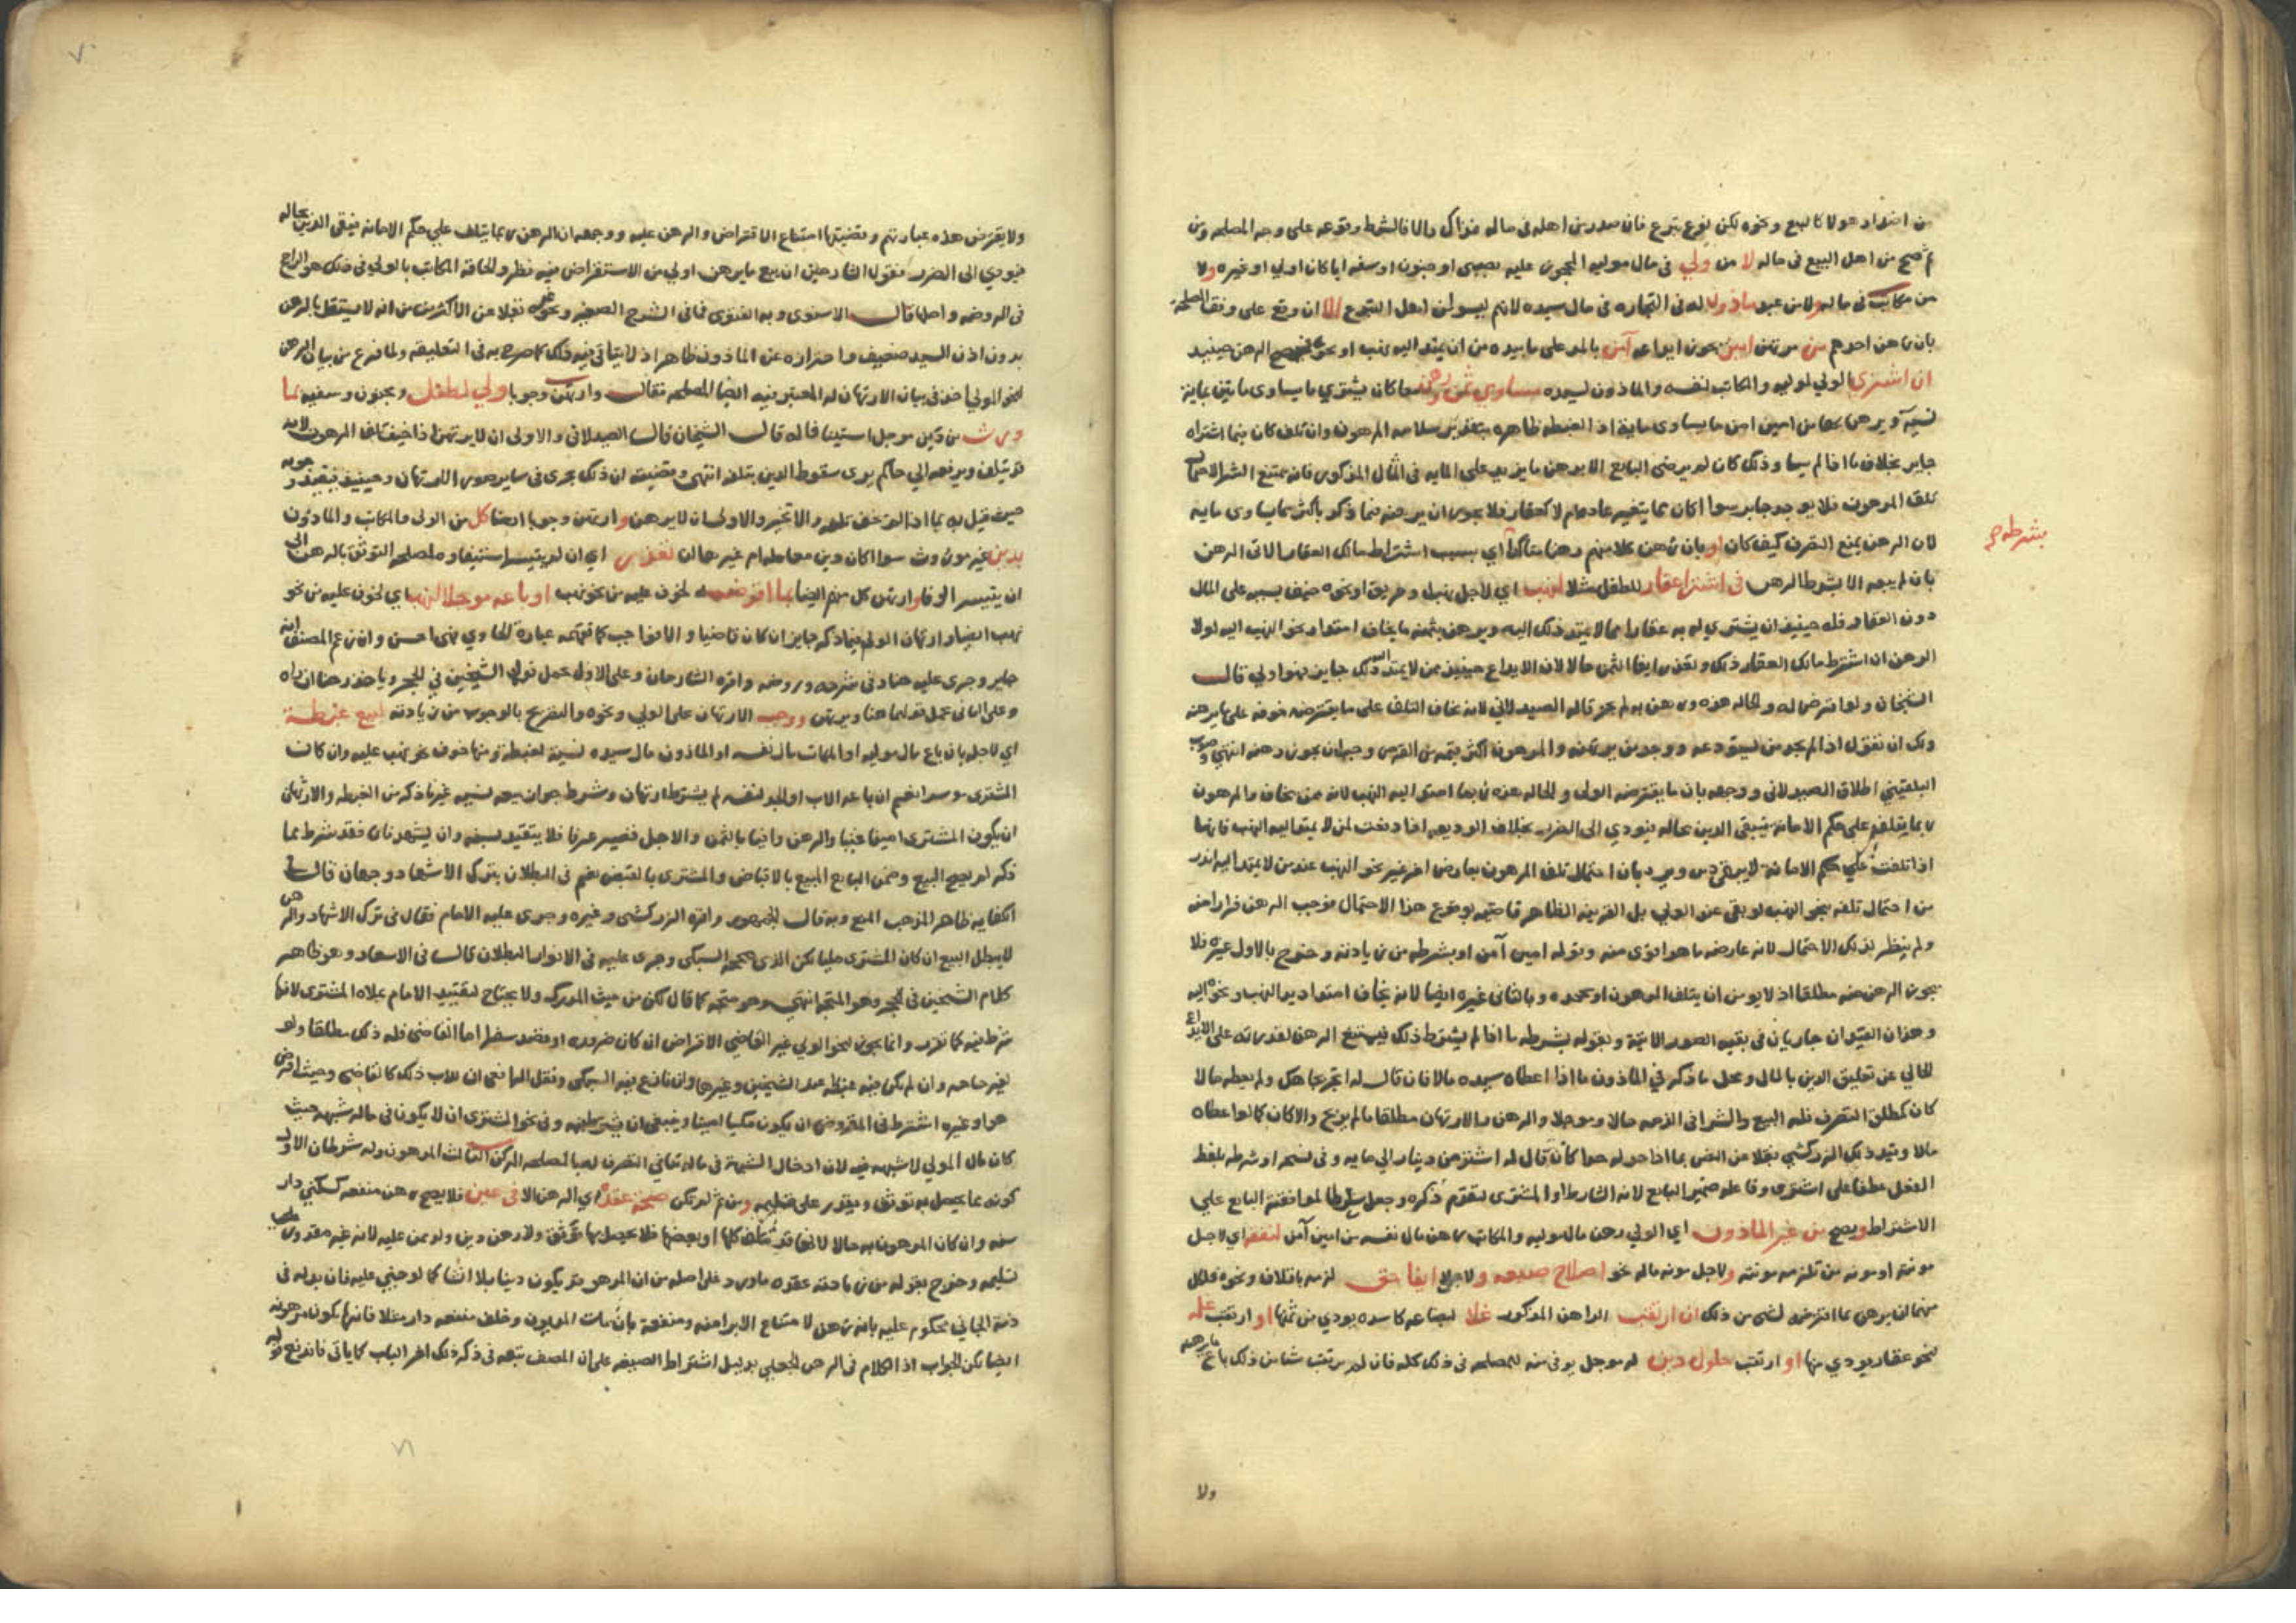 من اضداد هولا كالبيع ونحوه لكن بنوع تبرع فان صدر من اهله في ماله فذاك والا فالشرط وقوعه على وجه المصلحه ومن
ثم صح من اهل البيع في ماله لا من ولي في مال موليه المحجور عليه بصبى او جنون او سفه ايا كان اولي او غيره ولا
من مكاتب في ماله ولا من عبد ماذون له في التجاره في مال سيده لانهم ليسوا من اهل التبرع الا ان وقع على وفق المصلحة
بان رهن احدهم من مرتهن امين يجوز ايداعه آمن بالمد على ما بيده من ان يمتد اليه نهب او نحوه فيصح الرهن حينيد
ان اشترى الولي لموليه والمكاتب لنفسه والماذون لسيده بمساوي ثمن ورهن معا كان يشتري ما يساوى مايتين بماية
نسية ويرهن بها من امين امن ما يساوى ماية اذ الغبطه ظاهره بتقدير سلامه المرهون وان تلف كان فيما اشتراه
جابر بخلاف ما اذا لم يساو ذلك كان لم يرض البايع الا برهن ما يزيد على المايه في المثال المذكور فانه يمتنع الشرا لاحتمال
تلف المرهون فلا يوجد جابر سوا اكان مما يتغير عادة ام لا كعقار فلا يجوز ان يرهنه فيما ذكر باكثر مما يساوى مايه
لان الرهن يمنع التصرف كيف كان او بان رهن كلا منهم رهنا متاكدا اي بسبب اشتراط مالك العقار الاتى الرهن
بان لم يبعه الا بشرط الرهن في اشترا عقار للطفل مثلا لنهب اي لاجل نهب او حريق او نحوه خيف بسببه على المال
بشرطه صح
دون العقار فله حينيذ ان يشتري له به عقارا مما لا يمتد ذلك اليه ويرهن بثمنه ما يخاف امتداد نحو النهب اليه لولا
الرهن ان اشترط مالك العقار ذلك وتعذر ايفا الثمن حالا لان الايداع حينيذ ممن لا يمتد اليه ذلك جايز فهذا اولي قال
الشيخان ولو اقترض له والحاله هذه ورهن به لم يجز قاله الصيدلاني لانه يخاف التلف على ما يقترضه خوفه على ما يرهنه
ولك ان تقول اذا لم يجد من يستودعه ووجد من يرتهنه والمرهون اكثر قيمه من القرض وجب ان يجوز رهنه انتهي وصوب
البلقيني اطلاق الصيدلاني ووجهه بان ما يقترضه الولي والحاله هذه ربما امتد اليه النهب لانه ممن يخاف والمرهون
ربما يتلف على حكم الامانه فيبقى الدين بحاله فيودي الى الضرر بخلاف الوديعه اذا دفعت لمن لا يمتد اليه النهب فانها
اذا تلفت على حكم الامانه لا يبقى دين ويرد بان احتمال تلف المرهون بعارض اخر غير نحو النهب عند من لا يمتد اليه اندر
من احتمال تلفه بنحو النهب لو بقى عند الولي بل القرينه الظاهره قاضيه بوقوع هذا الاحتمال فوجب الرهن فرارا منه
ولم ينظر لذلك الاحتمال لانه عارضه ما هو اقوى منه وقوله امين آمن او بشرطه من زيادته وخرج بالاول غيره فلا
يجوز الرهن منه مطلقا اذ لا يومن ان يتلف المرهون او يجحده وبالثاني غيره ايضا لانه يخاف امتداد يد النهب ونحوه اليه
وهذان القيدان جاريان في بقيه الصور الاتية وبقوله بشرطه ما اذا لم يشترط ذلك فيمتنع الرهن لقدرته على الايداع
الخالي عن تعليق الدين بالمال ومحل ما ذكر في الماذون ما اذا اعطاه سيده مالا فان قال له اتجر بجاهك ولم يعطه مالا
كان كمطلق التصرف فله البيع والشرا في الذمه حالا وموجلا والرهن والارتهان مطلقا ما لم يربح والا كان كما لو اعطاه
مالا وقيد ذلك الزركشي نقلا عن النص بما اذا حد له حدا كان قال له اشتر من دينار الي مايه وفى نسخه او شرطه بلفظ
الفعل عطفا على اشترى وفاعله ضمير البايع لانه الشارط او المشترى لتقدم ذكره وجعل شرطا لموافقته البايع علي
الاشتراط ويصح من غير الماذون اي الولي رهن مال موليه والمكاتب رهن مال نفسه من امين آمن لنفقه اي لاجل
مونته او مونه من تلزمه مونته ولاجل مونه ماله نحو اصلاح ضيعه ولاجل ايفا حق لزمه باتلاف ونحوه فلكل
منهما ان يرهن بما اقترضه لشى من ذلك ان ارتقب الراهن المذكور غلا لبضاعه كاسده يودي من ثمنها او ارتقب غله
لنحو عقار يودي منها او ارتقب حلول دين له موجل يوفى منه للمصلحه في ذلك كله فان لم يرتقب شيا من ذلك باع ما يرهنه
ولا
ولا يقترض هذه عبارتهم وقضيتها امتناع الاقتراض والرهن عليه ووجهه ان الرهن ربما يتلف علي حكم الامانه فيبقى الدين بحاله
فيودي الى الضرر فقول الشارحين ان بيع ما يرهن اولي من الاستقراض فيه نظر والحاقه المكاتب بالولي في ذلك هو الراجح
في الروضه واصلها قال الاسنوي وبه الفتوى فما في الشرح الصغير ونحوه نقلا عن الاكثرين من انه لا يستقل بالرهن
بدون اذن السيد ضعيف واحترازه عن الماذون ظاهر اذ لا يتاتى فيه ذلك كما صرح به في التعليقه ولما فرغ من بيان الرهن
لنحو المولي اخذ في بيان الارتهان له المعتبر فيه ايضا المصلحه فقال وارتهن وجوبا ولي لطفل ومجنون وسفيه بما
ورث من دين موجل استيثاقا له قال الشيخان قال الصيدلانى والاولى ان لا يرتهن اذا خيف تلف المرهون لانه
قد يتلف ويرفعه الي حاكم يرى سقوط الدين بتلفه انتهى وقضيته ان ذلك يجرى في ساير صور الارتهان وحينيذ فيقيد وجوبه
حيث قيل به بما اذا لم يخف تلفه والا تخير والاولى ان لا يرهن وارتهن وجوبا ايضا كل من الولي والمكاتب والماذون
بدين غير موروث سوا اكان دين معامله ام غيرها ان تعذر اي ان لم يتيسر استيفاوه لمصلحه التوثق بالرهن الى
ان يتيسر الوفا وارتهن كل منهم ايضا بما اقرضه لخوف عليه من نحو نهب او باعه موجلا لنهب اي لخوف عليه من نحو
نهب ايضا وارتهان الولي فيما ذكر جايز ان كان قاضيا والا فواجب كما تفهمه عبارة الحاوي فهى احسن وان زعم المصنف انه
جايز وجرى عليه هنا وفى شرحه وروضه واقره الشارحان وعلى الاول يحمل قول الشيخين في الحجر وياخذ رهنا ان راه
وعلى الثانى يحمل قولهما هنا ويرتهن ووجب الارتهان على الولي ونحوه والتصريح بالوجوب من زيادته لبيع غبطة
اي لاجله بان باع مال موليه او المكاتب مال نفسه او الماذون مال سيده نسية لغبطه ومنها خوف نحو نهب عليه وان كان
المشترى موسرا نعم ان باعه الاب او الجد لنفسه لم يشترط ارتهان وشرط جواز بيعه نسيه غير ما ذكر من الغبطه والارتهان
ان يكون المشترى امينا غنيا والرهن وافيا بالثمن والاجل قصير عرفا فلا يتقيد بسنه وان يشهد فان فقد شرط مما
ذكر لم يصح البيع وضمن البايع المبيع بالاقباض والمشترى بالقبض نعم في البطلان بترك الاشهاد وجهان قال في
الكفايه ظاهر المذهب المنع وبه قال الجمهور واقره الزركشى وغيره وجرى عليه الامام فقال في ترك الاشهاد والرهن
لا يبطل البيع ان كان المشترى مليا لكن الذي صححه السبكى وجرى عليه في الانوار البطلان قال في الاسعاد وهو ظاهر
كلام الشيخين في الحجر وهو المتجه انتهي وهو متجه كما قال لكن من حيث المدرك ولا يحتاج لتقييد الامام بملاه المشترى لانها
شرط فيه كما تقرر وانما يجوز لنحو الولي غير القاضي الاقراض ان كان ضروره او قصد سفرا اما القاضى فله ذلك مطلقا ولو
لغير حاجه وان لم يكن فيه غبطه عند الشيخين وغيرهما وان نازع فيه السبكى ونقل الرافعى ان للاب ذلك كالقاضي وحيث اقرض
هو او غيره اشترط في المقترض ان يكون مليا امينا وينبغي ان يشترط فيه وفى نحو المشترى ان لا يكون في ماله شبهه حيث
كان مال المولي لا شبهه فيه لان ادخال الشبهة في ماله تنافي التصرف له بالمصلحه الركن الثالث المرهون وله شرطان الاول
كونه مما يحصل به توثق ويقدر على تسليمه ومن ثم لم تكن صحة عقد اي الرهن الا في عين فلا يصح رهن منفعه كسكنى دار
سنه وان كان المرهون به حالا لانها قد تتلف كلها او بعضها فلا يحصل بها توثق ولا رهن دين ولو ممن عليه لانه غير مقدور على
تسليمه وخرج بقوله من زيادته عقده ما ورد على اصله من ان المرهون قد يكون دينا بلا انشا كما لو جنى عليه فان بدله في
ذمة الجاني محكوم عليه بانه رهن لامتناع الابرا منه ومنفعة بان مات المديون وخلف منفعه دار مثلا فانها تكون مرهونه
ايضا لكن الجواب اذ الكلام في الرهن الجعلي بدليل اشتراط الصيغه على ان المصنف تبعه في ذكر ذلك اخر الباب كما ياتى فاندفع قوله